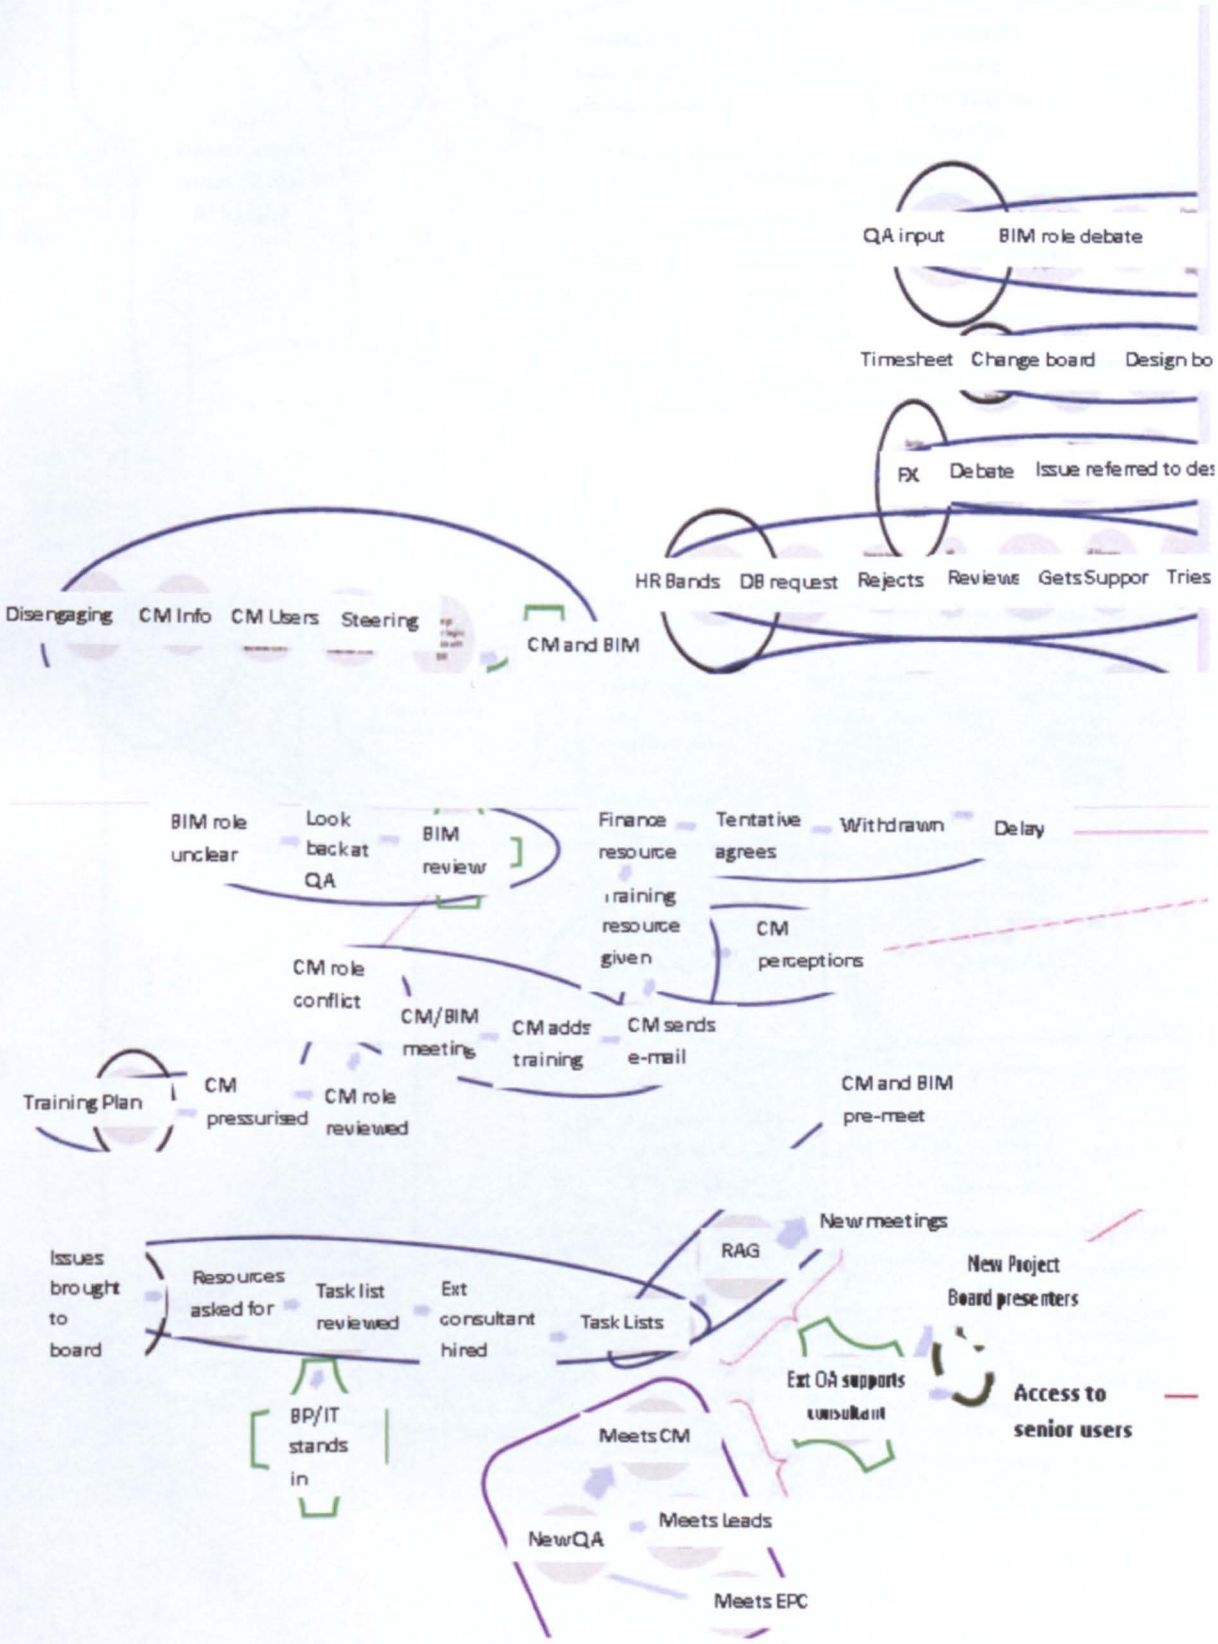 QA input BIM role debate
Timesheet Change board Design bo
FX Debate Issue referred to des
HR Bands DB request Rejects Reviews Gets Suppor Tries
Disengaging CM Info CM Users Steering
CM and BIM
BIM role
unclear
Look
back at
QA
BIM
review
Finance
resource
Tentative
agrees
Withdrawn
Delay
Training
resource
given
CM
perceptions
CM role
conflict
CM/BIM
meeting
CM adds
training
CM sends
e-mail
Training Plan
CM
pressurised
CM role
reviewed
CM and BIM
pre-meet
RAG
New meetings
Issues
brought
to
board
Resources
asked for
Task list
reviewed
Ext
consultant
hired
Task Lists
New Project
Board presenters
Ext QA supports
consultant
Access to
senior users
BP/IT
stands
in
Meets CM
New QA
Meets Leads
Meets EPC